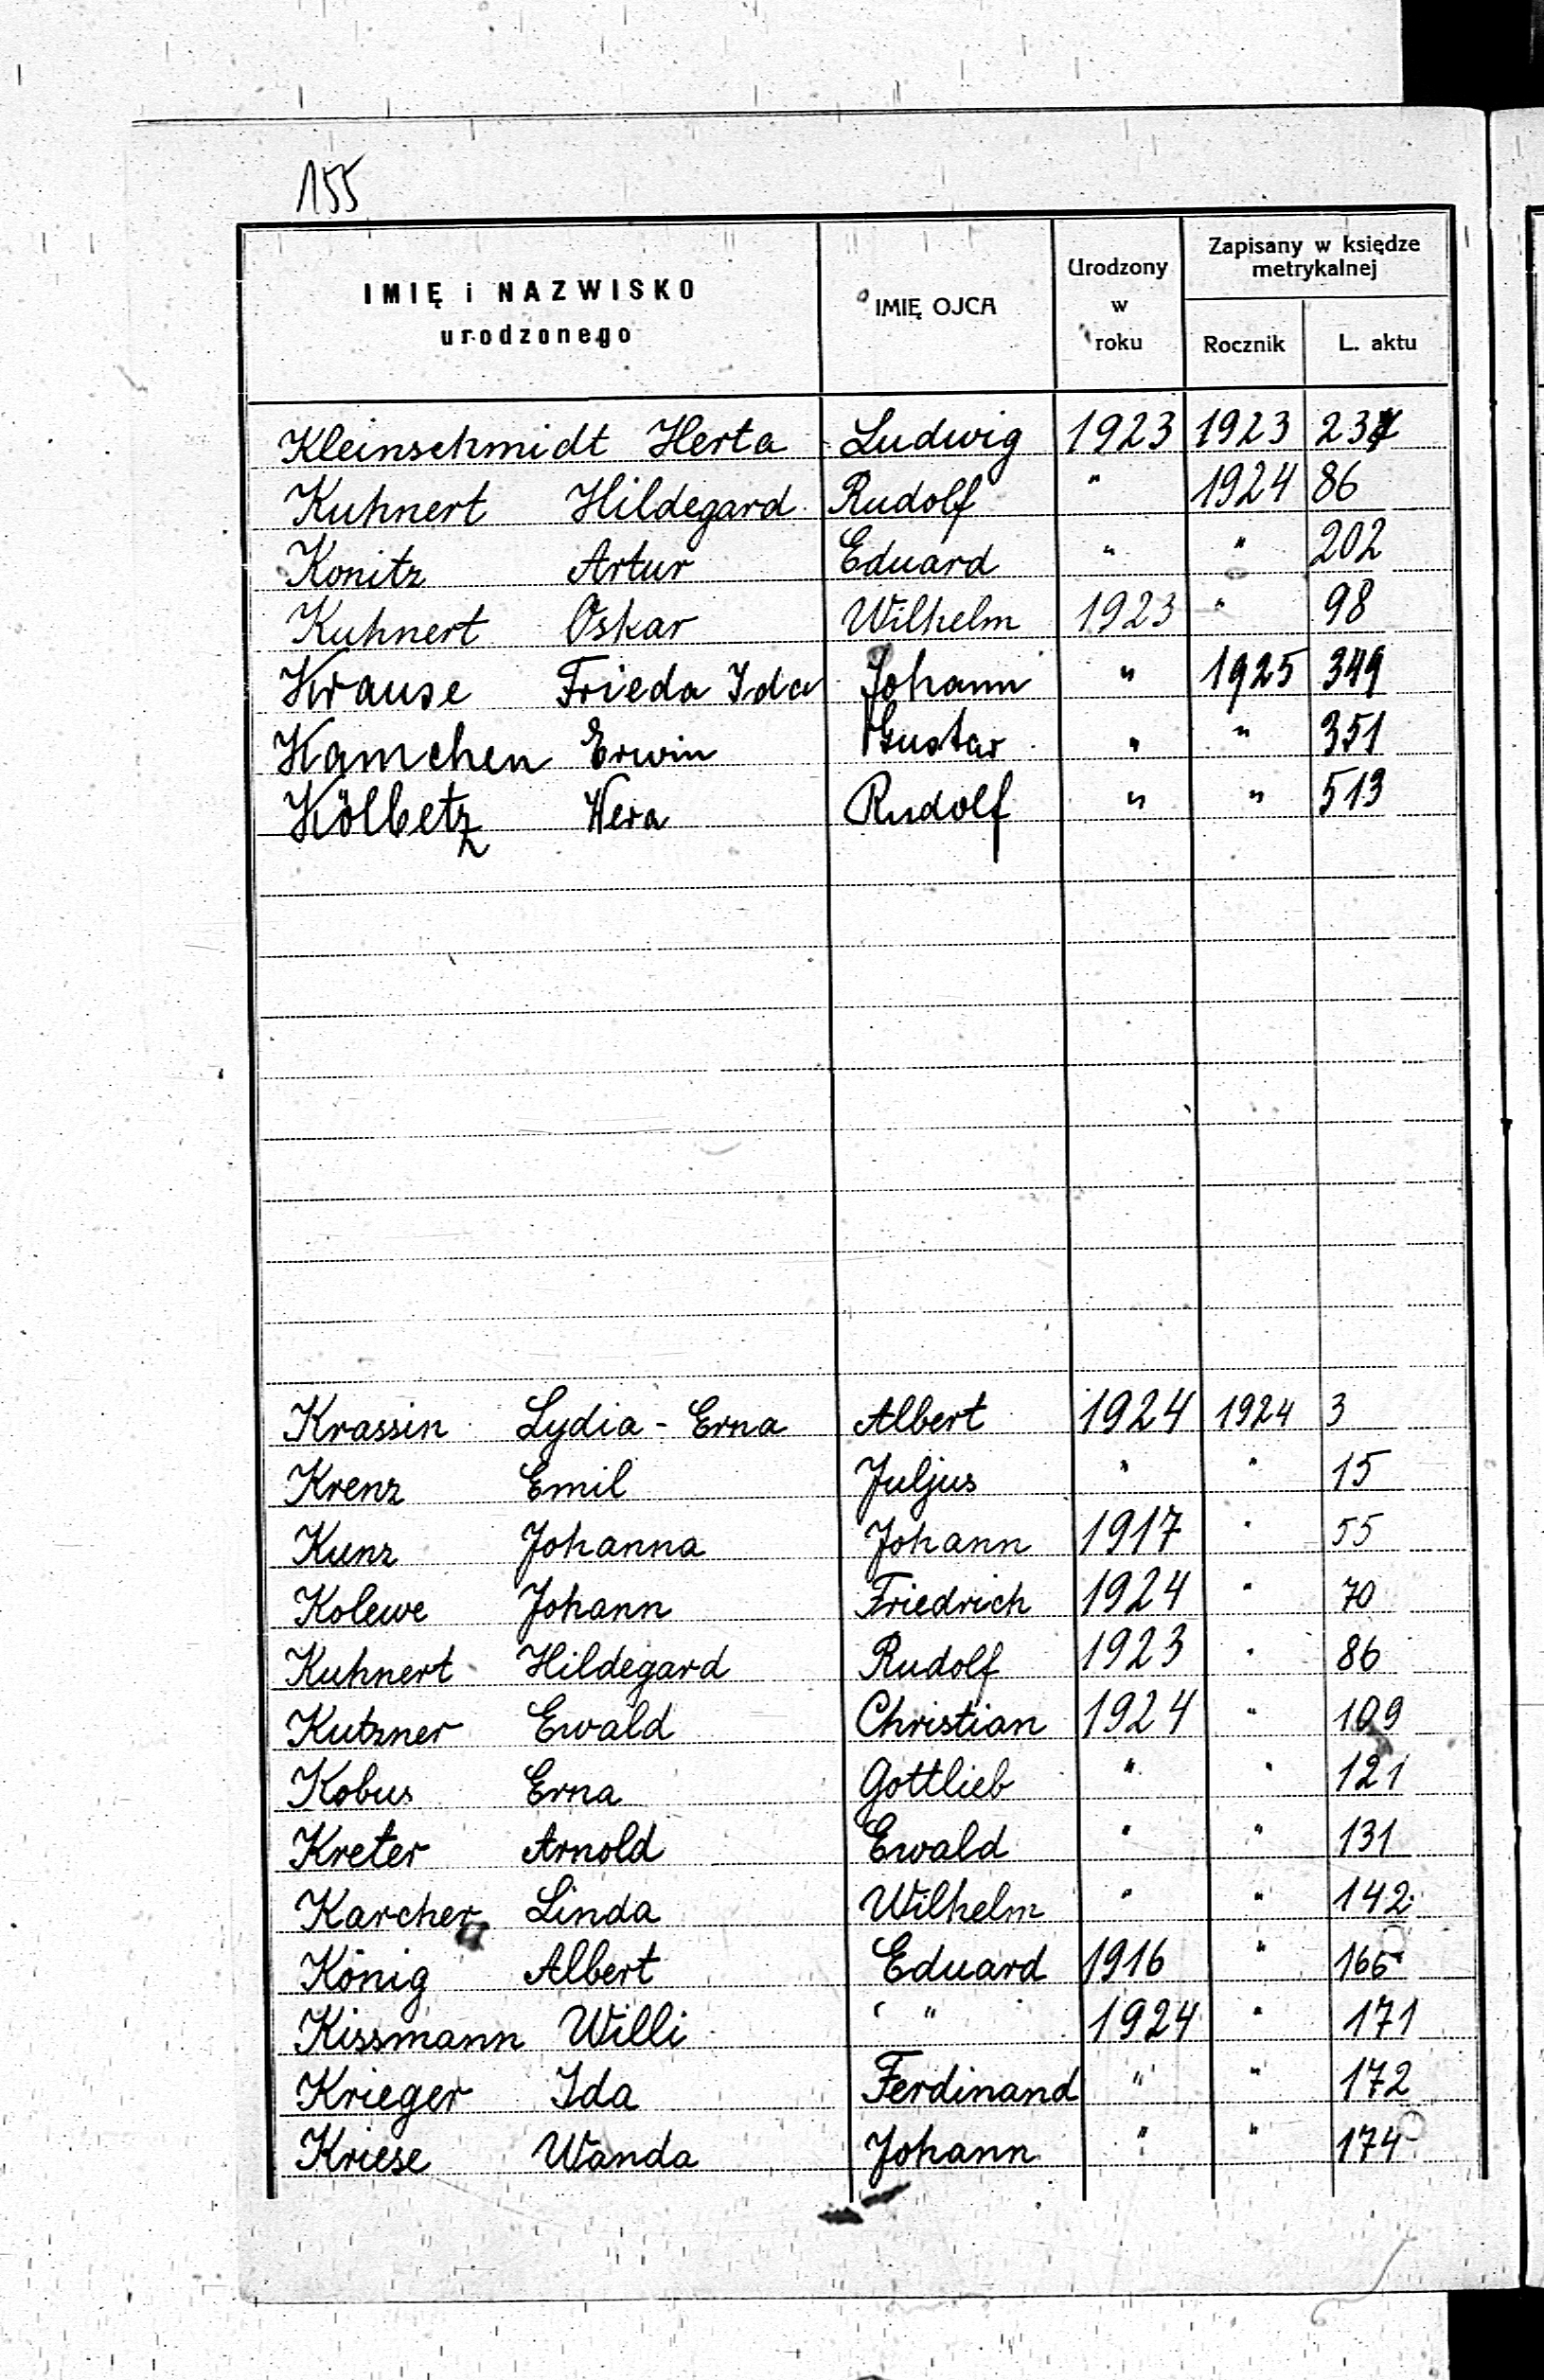 155
IMIĘ i NAZWISKO urodzonego IMIĘ OJCA Urodzony w roku Zapisany w księdze metrykalnej Rocznik L. aktu
Kleinschmidt Herta Ludwig 1923 1923
Kuhnert Hildegard Rudolf " 1924 86
Konitz Artur Eduard " " 202
Kuhnert Oskar Wilhelm 1923 " 98
Krause Frieda Ida Johann " 1925 349
Kamchen Erwin Gustav " " 351
Kölbetz Wera Rudolf " " 513
Krassin Lydia - Erna Albert 1924 1924 3
Krenz Emil Juljus " " 15
Kunz Johanna Johann 1917 " 55
Kolewe Johann Friedrich 1924 " 70
Kuhnert Hildegard Rudolf 1923 " 86
Kutzner Ewald Christian 1924 " 109
Kobus Erna Gottlieb " " 121
Kreter Arnold Ewald " " 131
Karcher Linda Wilhelm " " 142
König Albert Eduard 1916 " 166
Kissmann Willi " 1924 " 171
Krieger Ida Ferdinand " " 172
Kriese Wanda Johann " " 174